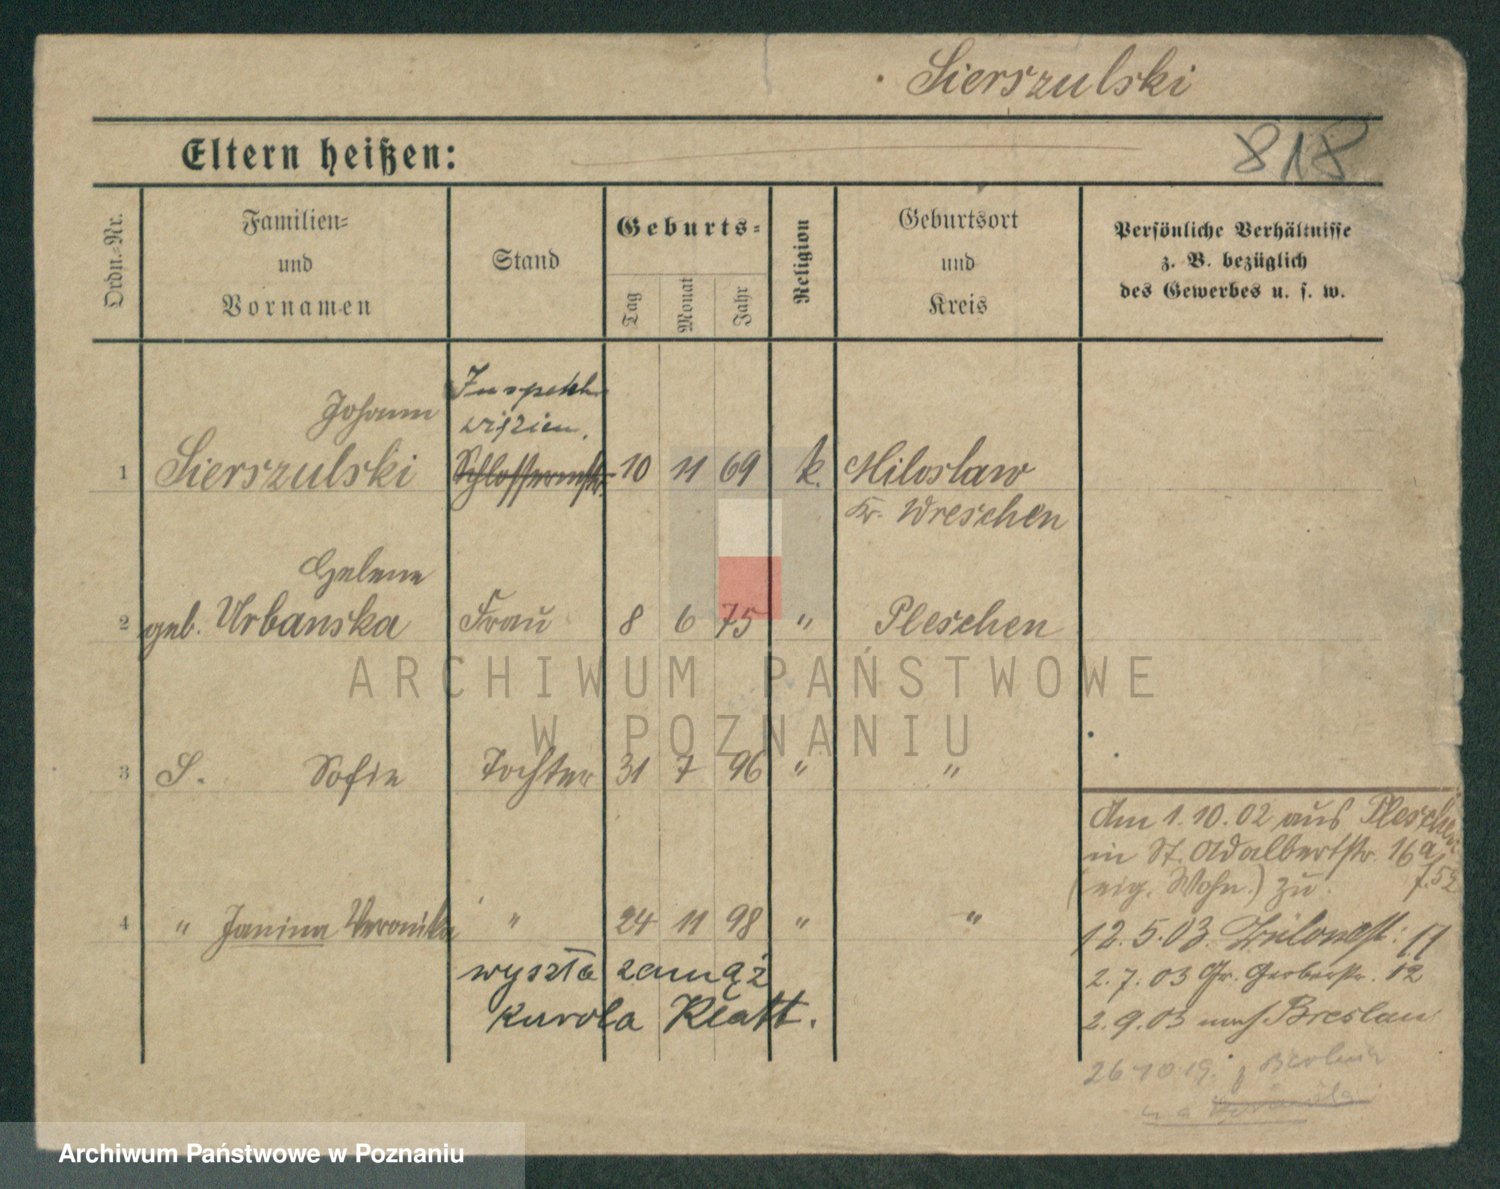 Sierszulski
818
Eltern heißen:
Ordn.-Nr.
Familien=
und
Vornamen
Stand
Geburts=
Tag
Monat
Jahr
Religion
Geburtsort
und
Kreis
Persönliche Verhältnisse
z. B. bezüglich
des Gewerbes u. s. w.
Johann
1 Sierszulski Schlossermstr. 10 11 69 k. Miloslaw
Kr. Wreschen
Helene
2 geb. Urbanska Frau 8 6 75 " Pleschen
3 S. Sofie Tochter 31 7 96 " "
4 " Janina Veronika " 24 11 98 " "
wyszła zamąż
Karola Klatt.
Am 1.10.02 aus Pleschen
in St. Adalbertstr. 16a
(eig. Wohn.) zu.
12.5.03.
2.7.03 Gr. Gerberstr. 12
2.9.03 nach Breslau
26 10 19.
ARCHIWUM PAŃSTWOWE
W POZNANIU
Archiwum Państwowe w Poznaniu